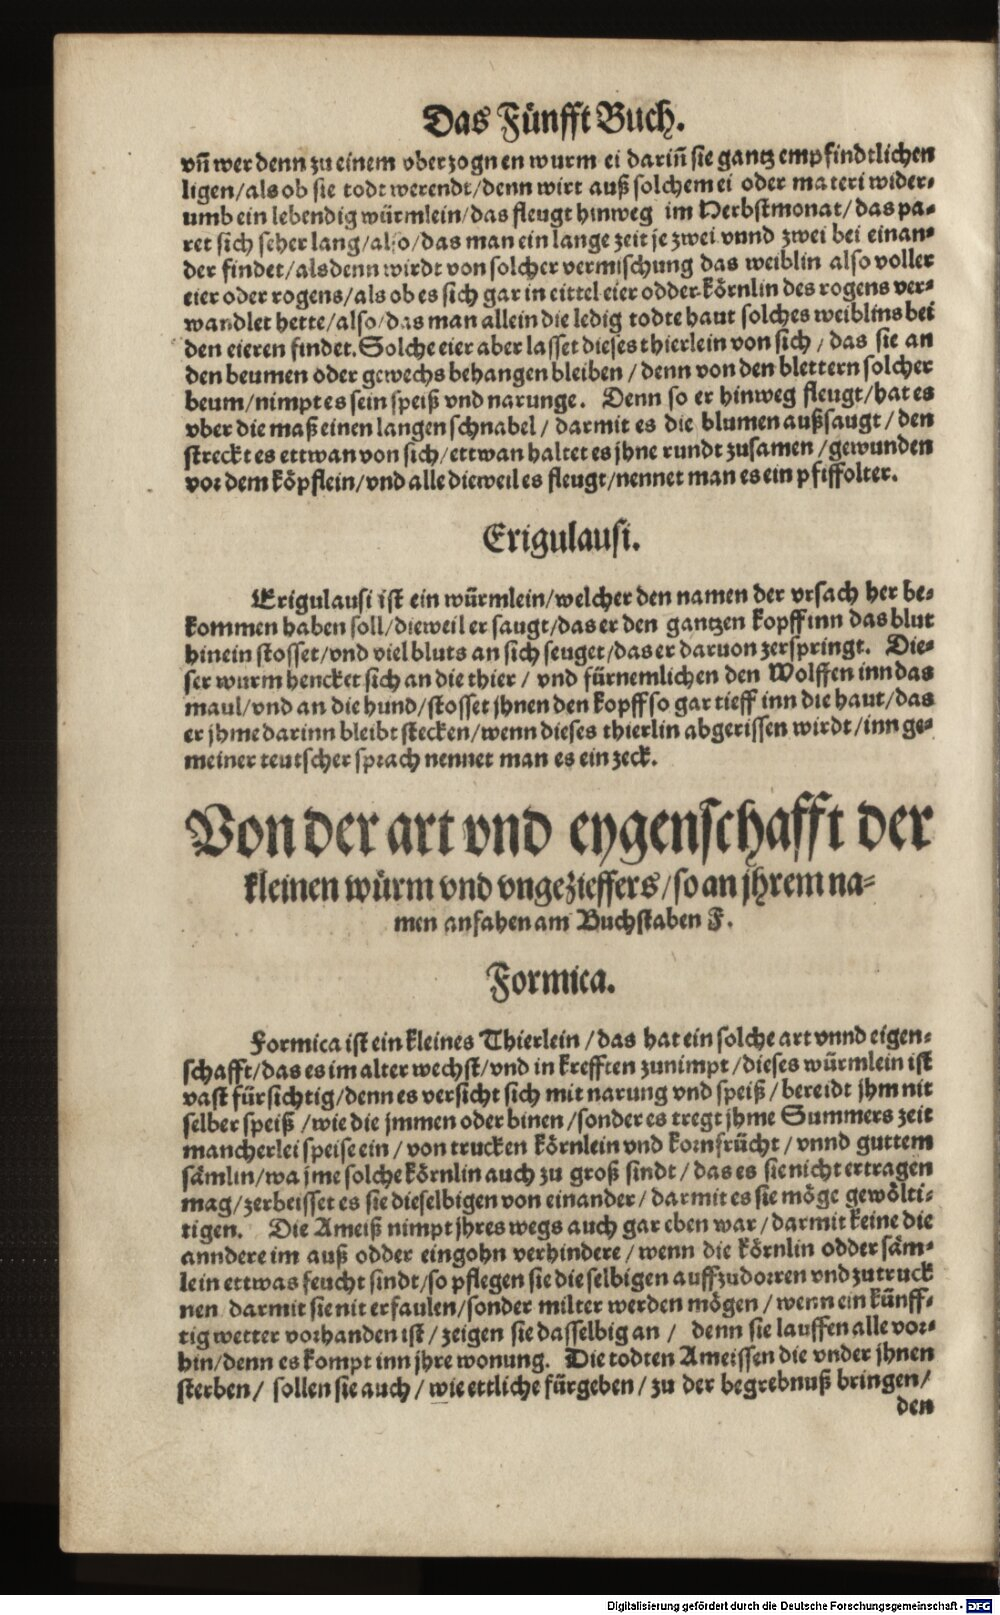 Das Fünfft Buch.
vñ wer denn zu einem vberzognen wurm ei dariñ sie gantz empfindtlichen
ligen/als ob sie todt werendt/denn wirt auß solchem ei oder materi wider-
umb ein lebendig würmlein/das fleugt hinweg im Herbstmonat/das pa-
ret sich seher lang/also/das man ein lange zeit je zwei vnnd zwei bei einan-
der findet/alsdenn wirdt von solcher vermischung das weiblin also voller
eier oder rogens/als ob es sich gar in eittel eier odder körnlin des rogens ver-
wandlet hette/also/das man allein die ledig todte haut solches weiblins bei
den eieren findet. Solche eier aber lasset dieses thierlein von sich/das sie an
den beumen oder gewechs behangen bleiben/denn von den blettern solcher
beum/nimpt es sein speiß vnd narunge. Denn so er hinweg fleugt/hat es
vber die maß einen langen schnabel/darmit es die blumen außsaugt/den
streckt es ettwan von sich/ettwan haltet es jhne rundt zusamen/gewunden
vor dem köpflein/vnd alle dieweil es fleugt/nennet man es ein pfiffolter.
Erigulausi.
Erigulausi ist ein würmlein/welcher den namen der vrsach her be-
kommen haben soll/dieweil er saugt/das er den gantzen kopff inn das blut
hinein stosset/vnd viel bluts an sich seuget/das er daruon zerspringt. Die-
ser wurm hencket sich an die thier/vnd fürnemlichen den Wolffen inn das
maul/vnd an die hund/stosset jhnen den kopff so gar tieff inn die haut/das
er jhme darinn bleibt stecken/wenn dieses thierlin abgerissen wirdt/inn ge-
meiner teutscher sprach nennet man es ein zeck.
Von der art vnd eygenschafft der
kleinen würm vnd vngezieffers/so an jhrem na-
men anfahen am Buchstaben F.
Formica.
Formica ist ein kleines Thierlein/das hat ein solche art vnnd eigen-
schafft/das es im alter wechst/vnd in krefften zunimpt/dieses würmlein ist
vast fürsichtig/denn es versicht sich mit narung vnd speiß/bereidt jhm nit
selber speiß/wie die jmmen oder binen/sonder es tregt jhme Summers zeit
mancherlei speise ein/von trucken körnlein vnd kornfrücht/vnnd guttem
sämlin/wa jme solche körnlin auch zu groß sindt/das es sie nicht ertragen
mag/zerbeisset es sie dieselbigen von einander/darmit es sie möge gewölti-
tigen. Die Ameiß nimpt jhres wegs auch gar eben war/darmit keine die
anndere im auß odder eingohn verhindere/wenn die körnlin odder säm-
lein ettwas feucht sindt/so pflegen sie dieselbigen auffzudorren vnd zutruck
nen/darmit sie nit erfaulen/sonder milter werden mögen/wenn ein künff-
tig wetter vorhanden ist/zeigen sie dasselbig an/denn sie lauffen alle vor-
hin/denn es kompt inn jhre wonung. Die todten Ameissen die vnder jhnen
sterben/sollen sie auch/wie ettliche fürgeben/zu der begrebnuß bringen/
den
Digitalisierung gefördert durch die Deutsche Forschungsgemeinschaft - DFG